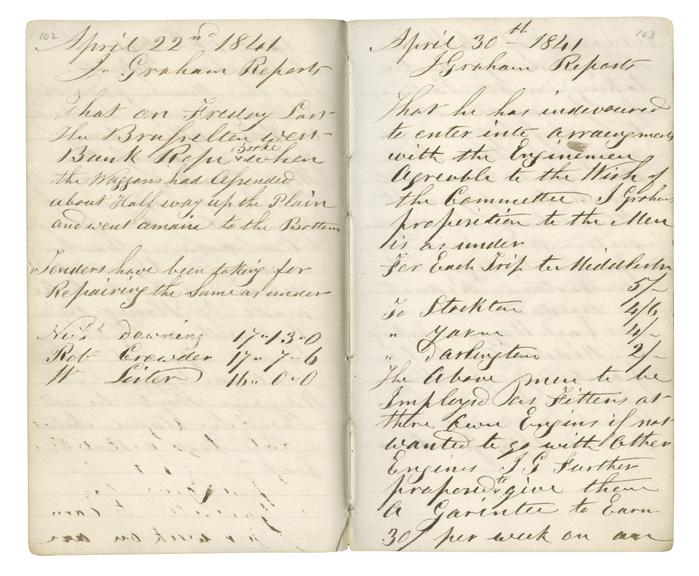 102
April 22nd 1841
Jn Graham Reports
That on Freday Last
the Brusselten west
Bank Rope Broke when
the Waggons had Assended
about Half way up the Plain
and went amaine to the Bottom
Tenders have been taking for
Repairing the Same as under
Downing 17-13-0
Robt Crowder 17-7-6
W Lister 16-0-0
163
April 30th 1841
J Graham Reports
That he has indevoured
to enter into arrangments
with the Enginemen
Agreable to the Wish of
the Committee J Graham
proposition to the Men
is as under
For Each Trip to Middlesbro
5/-
To Stockton 4/6
" Yarm 4/-
" Darlington 2/-
The Above men to be
Imployd as Fitters at
there own Engins if not
wanted to go with Other
Engines J G Further
proposed to give them
A Garintee to Earn
30/ per week on an